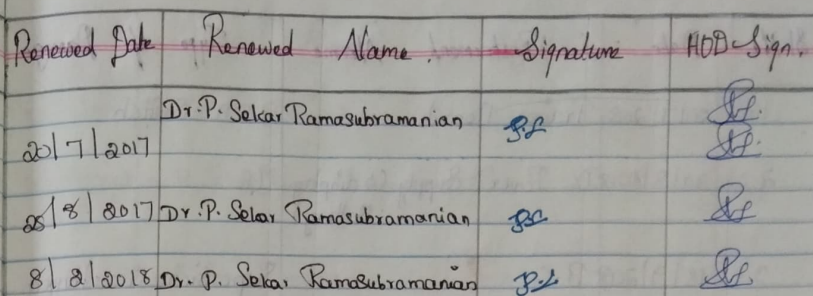 Renewed Date Renewed Name. Signature HOD Sign.
Dr. P. Sekar Ramasubramanian
20/7/2017
25/8/2017 Dr. P. Sekar Ramasubramanian
8/2/2018 Dr. P. Sekar Ramasubramanian